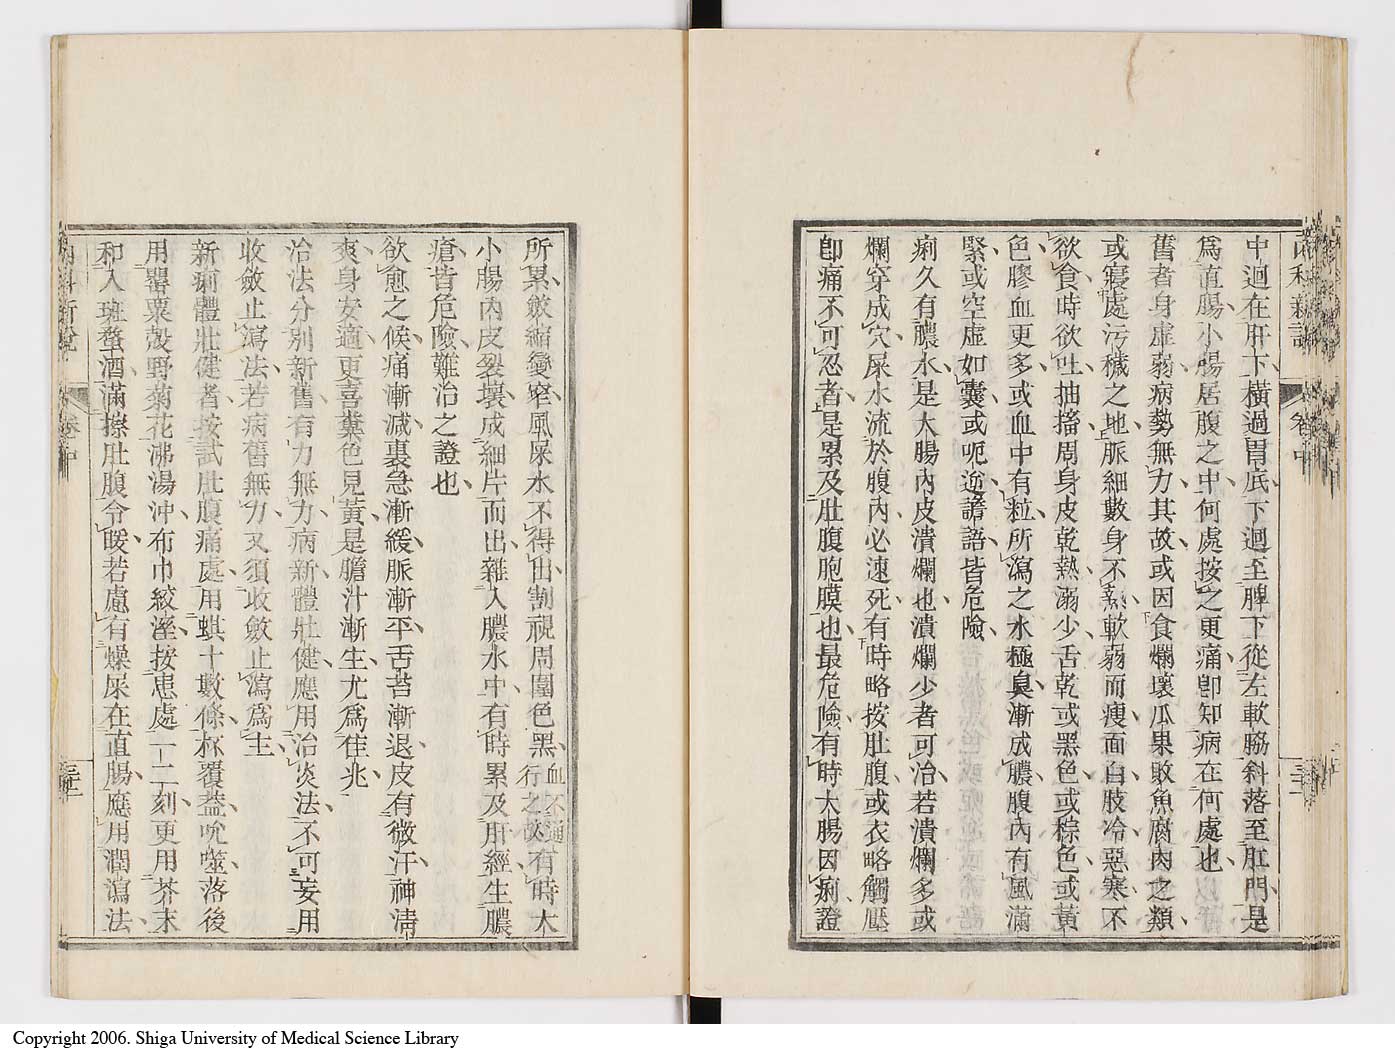 中迴在肝下橫過胃底下迴至脾下從左軟脇斜落至肛門是
爲直腸小腸居腹之中何處按之更痛卽知病在何處也
舊者身虛弱病勢無力其故或因食爛壞瓜果敗魚腐肉之類
或寢處污穢之地脈細數身不熱軟弱而瘦面白肢冷惡寒不
欲食時欲吐抽搐周身皮乾熱溺少舌乾或黑色或棕色或黃
色膠血更多或血中有粒所瀉之水極臭漸成膿腹內有風滿
緊或空虛如囊或呃逆譫語皆危險
痢久有膿水是大腸內皮潰爛也潰爛少者可治若潰爛多或
爛穿成穴屎水流於腹內必速死有時略按肚腹或衣略觸壓
卽痛不可忍者是累及肚腹胞膜也最危險有時大腸因痢證
內科新說 卷中 三十一
所累斂縮變窄風屎水不得出割視周圍色黑血不通行之故有時大
小腸內皮裂壞成細片而出雜入膿水中有時累及肝經生膿
瘡皆危險難治之證也
欲愈之候痛漸減裏急漸緩脈漸平舌苔漸退皮有微汗神淸
爽身安適更喜糞色見黃是膽汁漸生尤爲佳兆
治法分別新舊有力無力病新體壯健應用治炎法不可妄用
收斂止瀉法若病舊無力又須收斂止瀉爲主
新痢體壯健者按試肚腹痛處用蜞十數條杯覆葢吮噬落後
用罌粟殼野菊花沸湯沖布巾絞溼按患處一二刻更用芥末
和入斑蝥酒滿擦肚腹令暖若慮有燥屎在直腸應用潤瀉法
內科新說 卷中 三十二
Copyright 2006. Shiga University of Medical Science Library